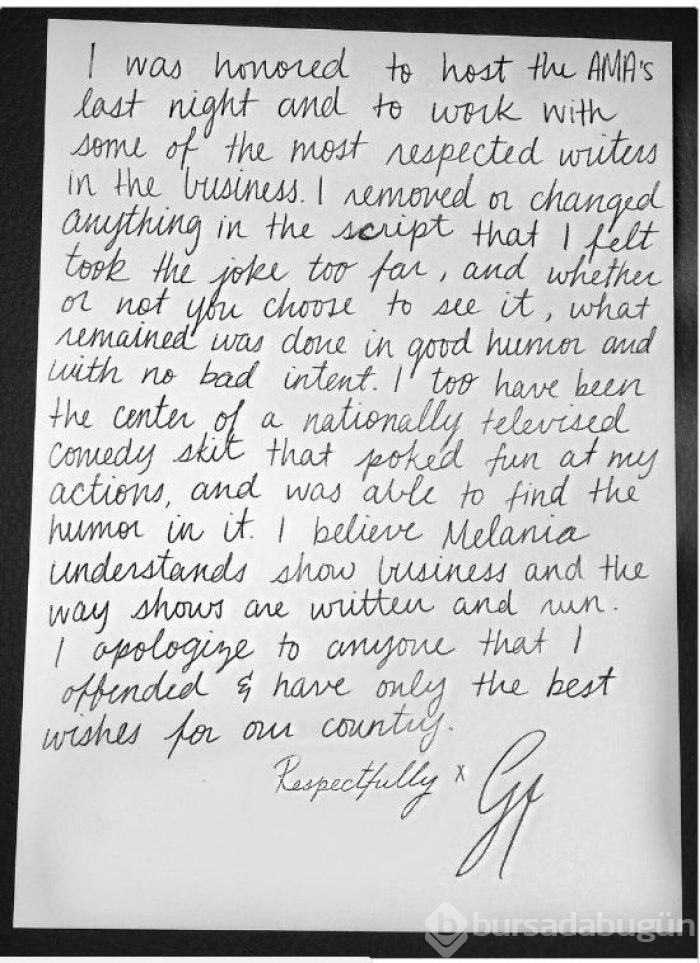 I was honored to host the AMA's
last night and to work with
some of the most respected writers
in the business. I removed or changed
anything in the script that I felt
took the joke too far, and whether
or not you choose to see it, what
remained was done in good humor and
with no bad intent. I too have been
the center of a nationally televised
comedy skit that poked fun at my
actions, and was able to find the
humor in it. I believe Melania
understands show business and the
way shows are written and run.
I apologize to anyone that I
offended & have only the best
wishes for our country.
Respectfully x
bursadabugün